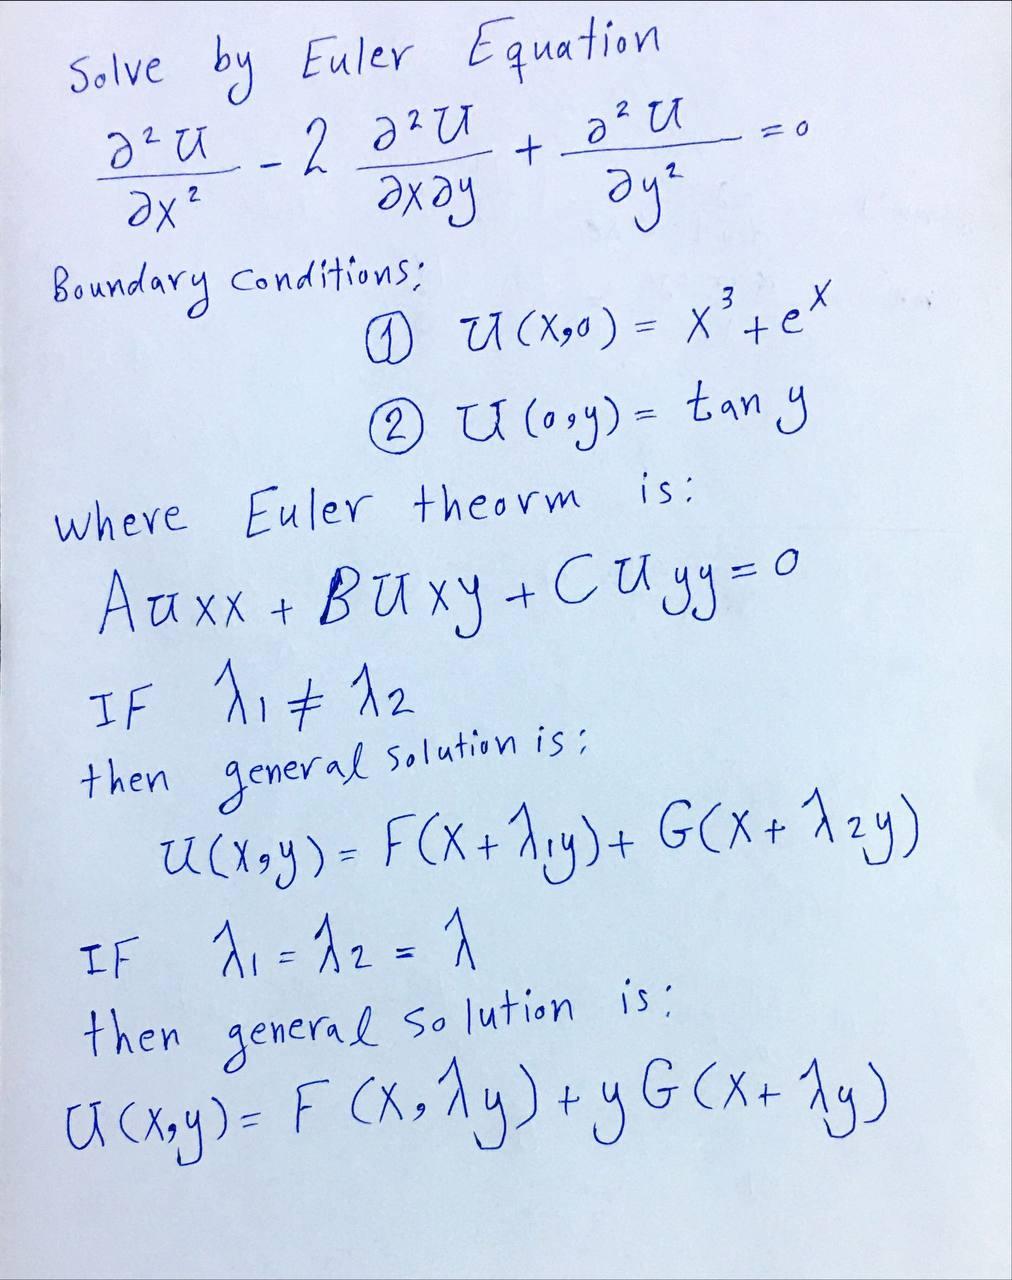 Solve by Euler Equation
∂²U/∂x² - 2 ∂²U/∂x∂y + ∂²U/∂y² = 0
Boundary conditions:
① U(x,0) = x³ + eˣ
② U(0,y) = tan y
where Euler theorm is:
A uxx + B Uxy + C Uyy = 0
IF λ1 ≠ λ2
then general solution is:
U(x,y) = F(x + λ1y) + G(x + λ2y)
IF λ1 = λ2 = λ
then general solution is:
U(x,y) = F(x, λy) + yG(x + λy)